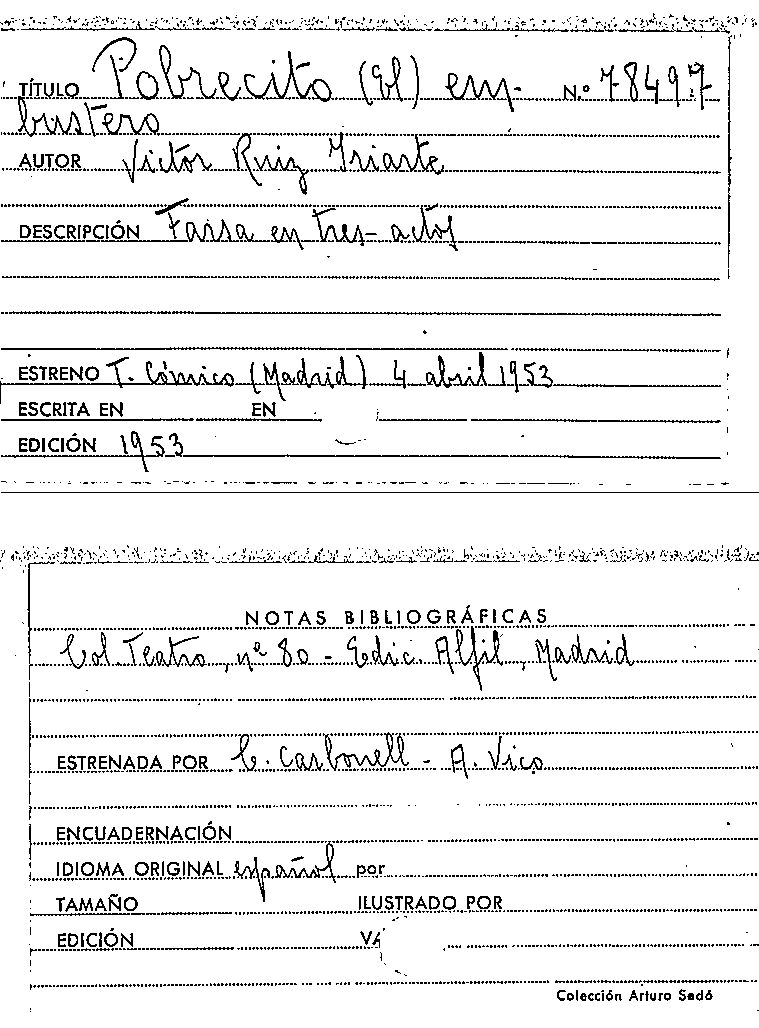 TÍTULO Pobrecito (El) em- N.º 78497
bustero
AUTOR Victor Ruiz Iriarte
DESCRIPCIÓN Farsa en tres actos
ESTRENO T. Cómico (Madrid) 4 abril 1953
ESCRITA EN EN
EDICIÓN 1953
NOTAS BIBLIOGRÁFICAS
Col. Teatro, nº 80 - Edic. Alfil, Madrid
ESTRENADA POR C. Carbonell - A. Vico
ENCUADERNACIÓN
IDIOMA ORIGINAL español por
TAMAÑO ILUSTRADO POR
EDICIÓN
Colección Arturo Sedó